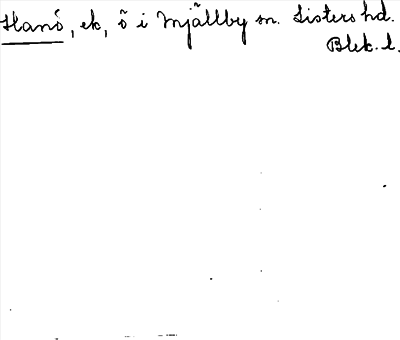 Hanö, ek, ö i Mjällby sn. Listers hd.
Blek. l.